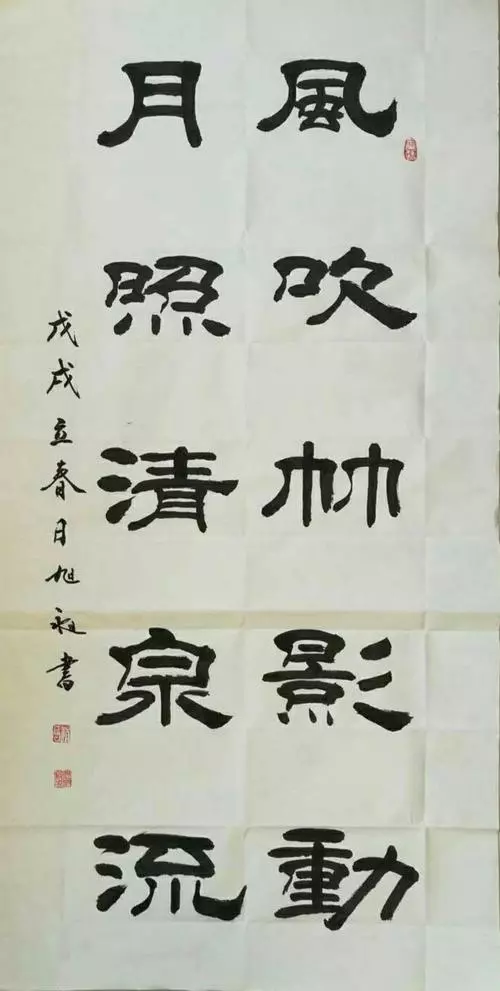 風吹竹影動
月照清泉流
戊戌立春日旭昶書